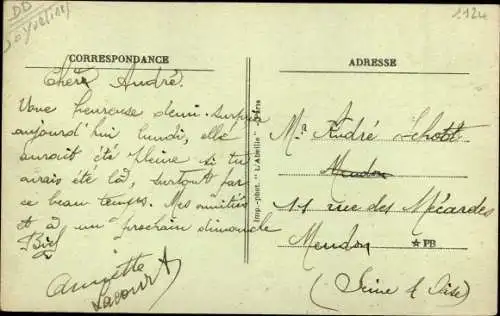 DD
1124
CORRESPONDANCE
ADRESSE
Cher André.
Une heureuse demi-surprise
aujourd'hui lundi, elle
aurait été pleine si tu
avais été là, surtout par
ce beau temps. Mes amitiés
et à un prochain dimanche
Annette
Lacourt
Imp.-phot. "L'Abeille" Paris
Mr André Schott
Meudon
11 rue des Mécardes
Meudon
★ PB
(Seine & Oise)